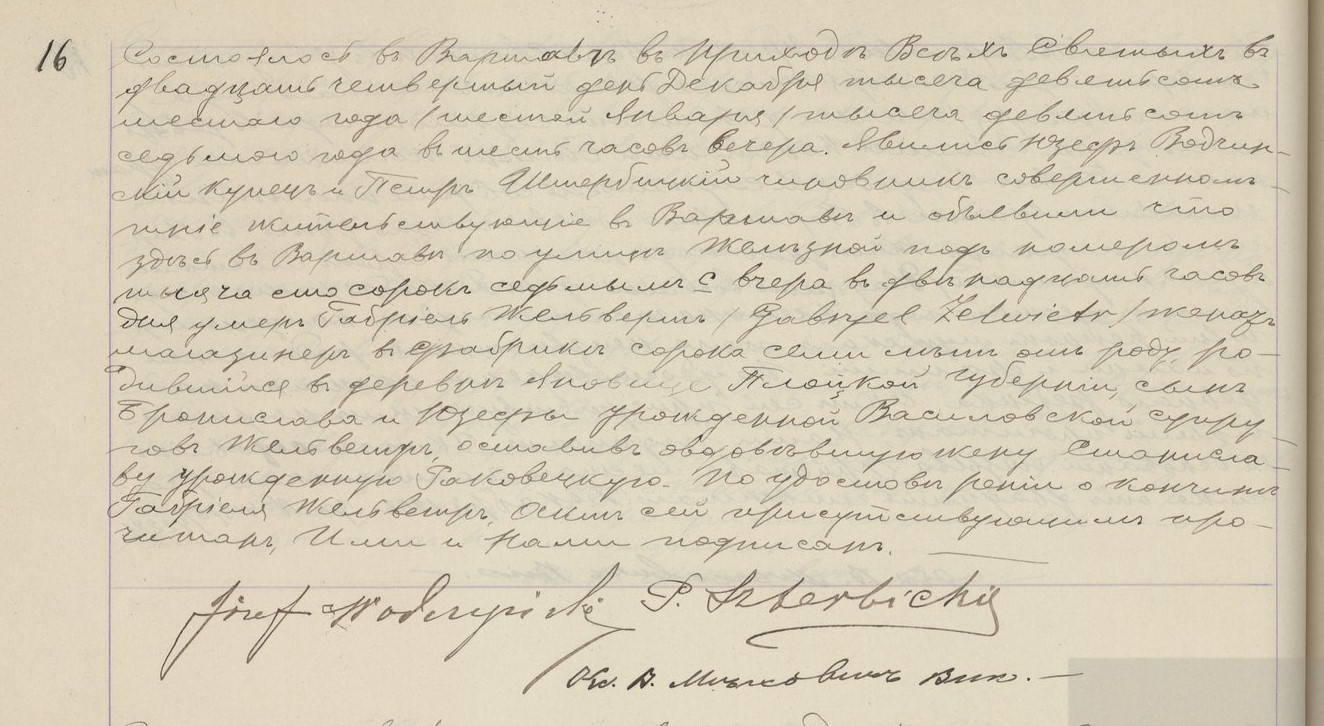 16
Состоялось въ Варшавѣ въ приходѣ Всѣхъ Святыхъ въ
двадцать четвертый день Декабря тысяча девятьсотъ
шестого года / шестой Января / тысяча девятьсотъ
седьмого года въ шесть часовъ вечера. Явились Юзефъ Водчин-
скій купецъ и Петръ Штербицкій чиновникъ совершеннолѣ-
тніе жительствующіе въ Варшавѣ и объявили что
здѣсь въ Варшавѣ по улицѣ Желѣзной подъ номеромъ
тысяча сто сорокъ седьмымъ с вчера въ двѣнадцать часовъ
дня умеръ Габріель Жельветръ / Gabryel Zelwietr /
магазинеръ въ фабрикѣ сорока семи лѣтъ отъ роду, ро-
дившійся въ деревнѣ Плоцкой губерніи, сынъ
Бронислава и Юзефы урожденной Василовской супру-
говъ Жельветръ, оставивъ овдовѣвшую жену Станисла-
ву урожденную Раковецкую. По удостовѣреніи о кончинѣ
Габріеля Жельветръ, Актъ сей присутствующимъ про-
читанъ, Ими и Нами подписанъ.
Józef Wodczyński P. Szterbicki
Кс. В. Вик.